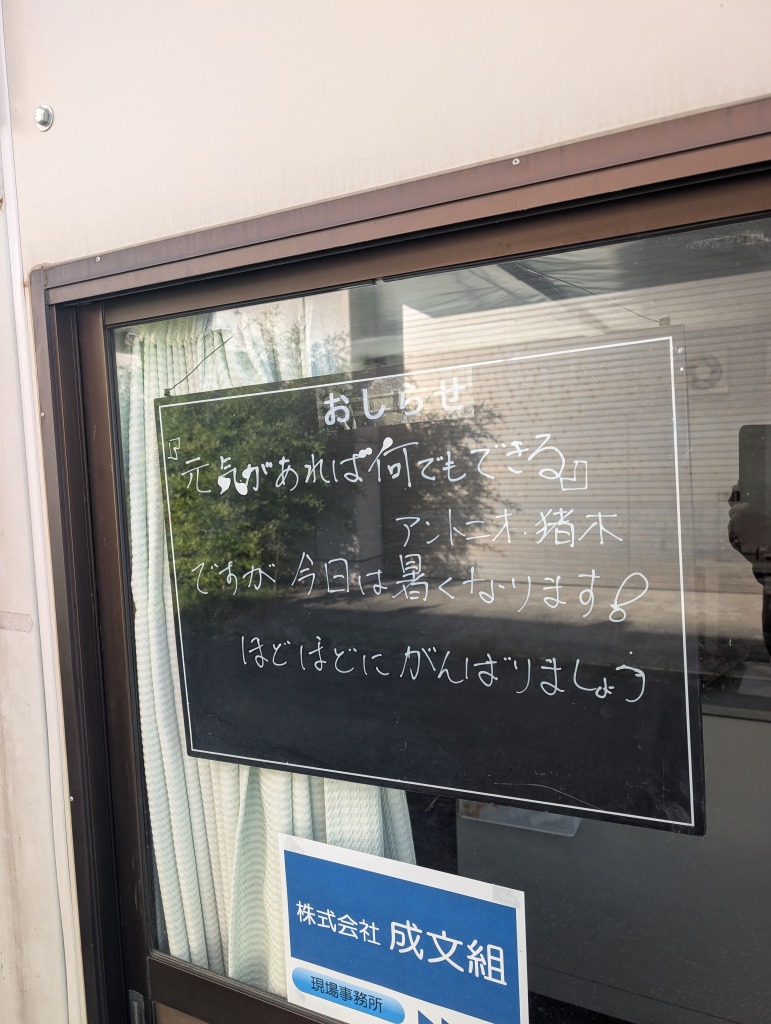 おしらせ
『元気があれば何でもできる』
アントニオ・猪木
ですが今日は暑くなります!
ほどほどにがんばりましょう
株式会社 成文組
現場事務所